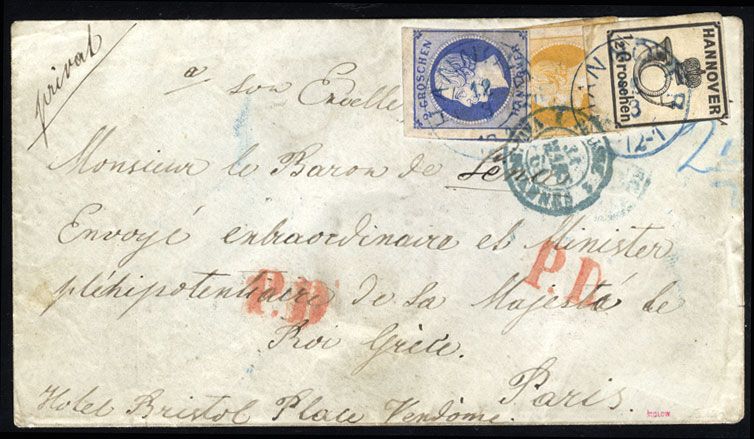 privat
a son Excelle
Monsieur le Baron de
Envoyé extraordinaire et Minister
pléhipotentiaire de Sa Majesté le
Roi Grèce.
Paris.
Hotel Bristol Place Vendôme.
P.D
P.D
GROSCHEN
HANNOVER
HANNOVER
1/2 Groschen
18